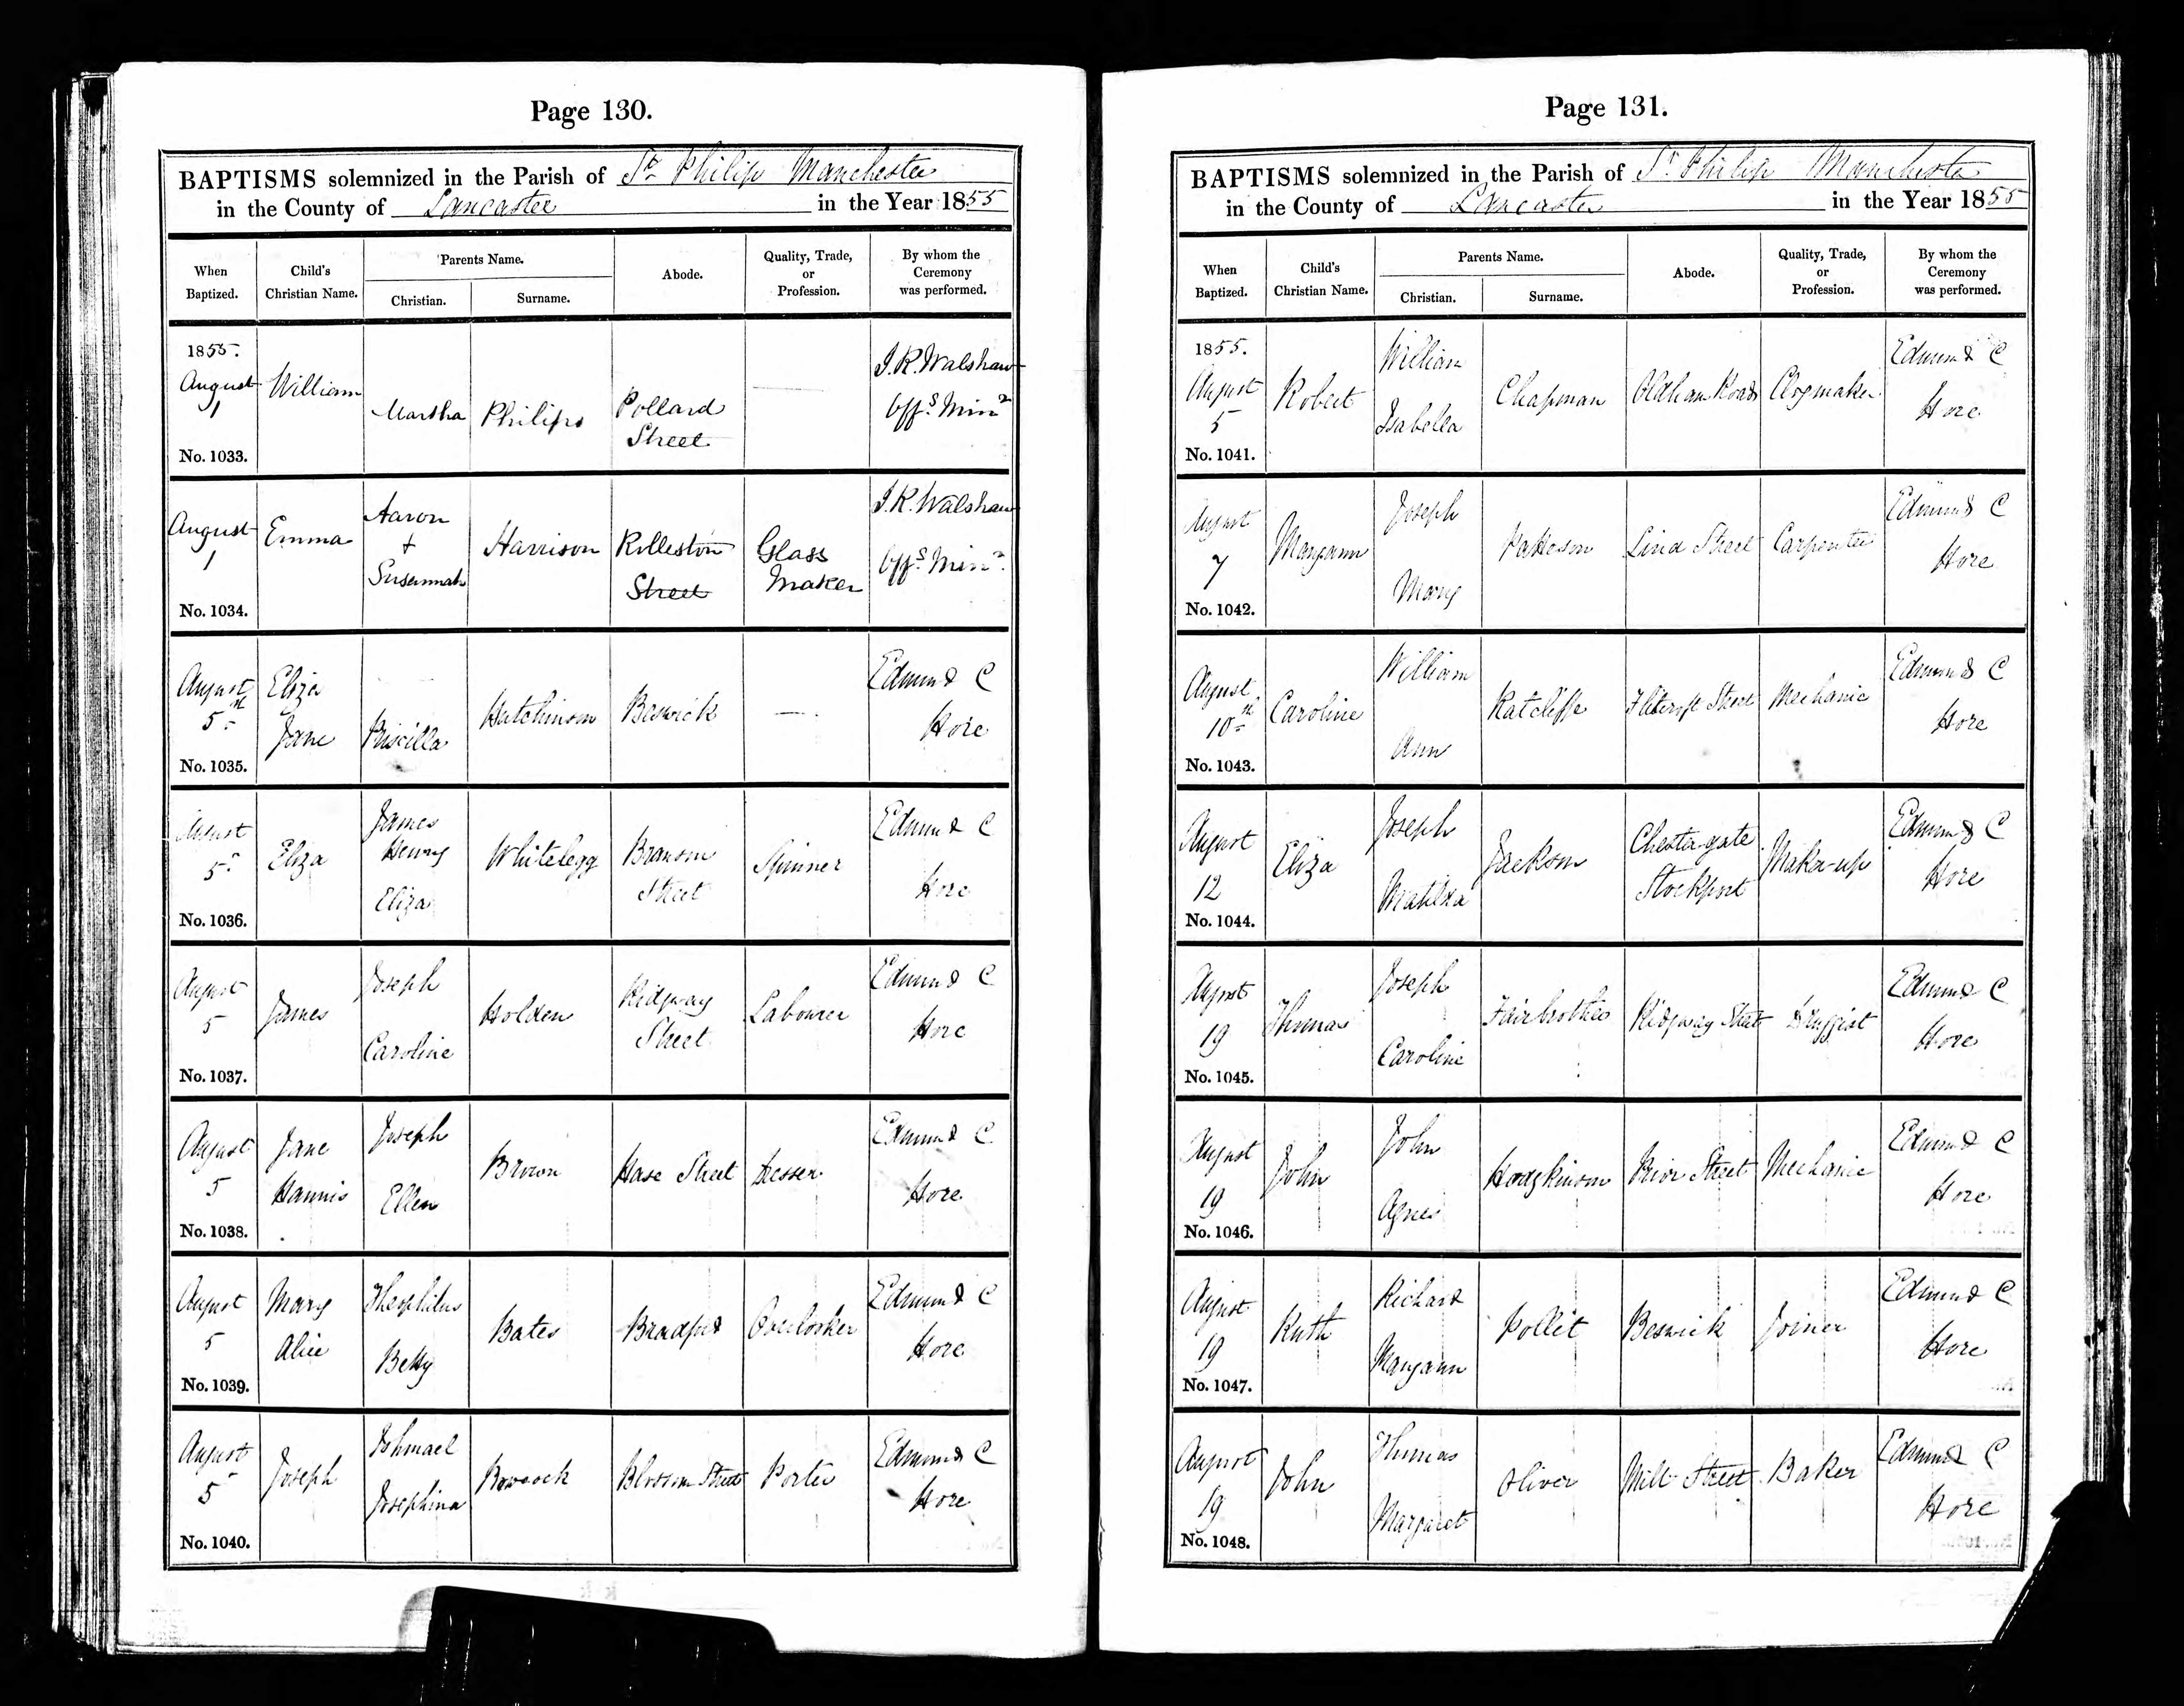 Page 130.
BAPTISMS solemnized in the Parish of St Philip Manchester
in the County of Lancaster in the Year 1855
When Baptized.
Child's Christian Name.
Parents Name.
Christian.
Surname.
Abode.
Quality, Trade, or Profession.
By whom the Ceremony was performed.
1855. August 1 No. 1033.
William
Martha
Philips
Pollard Street
J.R. Walshaw Offg Minr
August 1 No. 1034.
Emma
Aaron + Susannah
Harrison
Rolleston Street
Glass Maker
J.R. Walshaw Offg Minr
August 5th No. 1035.
Eliza Jane
Priscilla
Hutchinson
Beswick
Edmund C Hore
August 5 No. 1036.
Eliza
James Henry Eliza
Whitelegg
Branson Street
Spinner
Edmund C Hore
August 5 No. 1037.
James
Joseph Caroline
Holden
Ridgway Street
Labourer
Edmund C Hore
August 5 No. 1038.
Jane Hannis
Joseph Ellen
Brown
Hase Street
Edmund C Hore
August 5 No. 1039.
Mary Alice
Theophilus Betty
Bates
Bradford
Overlooker
Edmund C Hore
August 5 No. 1040.
Joseph
Ishmael Josephina
Blossom Street
Porter
Edmund C Hore
Page 131.
BAPTISMS solemnized in the Parish of St Philip Manchester
in the County of Lancaster in the Year 1855
When Baptized.
Child's Christian Name.
Parents Name.
Christian.
Surname.
Abode.
Quality, Trade, or Profession.
By whom the Ceremony was performed.
1855. August 5 No. 1041.
Robert
William Isabella
Chapman
Oldham Road
Clogmaker
Edmund C Hore
August 7 No. 1042.
Maryann
Joseph Mary
Patteson
Lind Street
Carpenter
Edmund C Hore
August 10th No. 1043.
Caroline
William Ann
Ratcliffe
Flitcroft Street
Mechanic
Edmund C Hore
August 12 No. 1044.
Eliza
Joseph Matilda
Jackson
Chestergate Stockport
Maker-up
Edmund C Hore
August 19 No. 1045.
Thomas
Joseph Caroline
Fairbrother
Ridgway Street
Druggist
Edmund C Hore
August 19 No. 1046.
John
John Agnes
Hodgkinson
Prior Street
Mechanic
Edmund C Hore
August 19 No. 1047.
Ruth
Richard Maryann
Pollit
Beswick
Joiner
Edmund C Hore
August 19 No. 1048.
John
Thomas Margaret
Oliver
Mill Street
Baker
Edmund C Hore